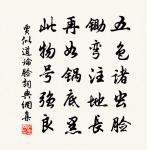 五色诸虫脸
锄弯注地长
再如锅底黑
此物号强良
贾似道论脸词典网集